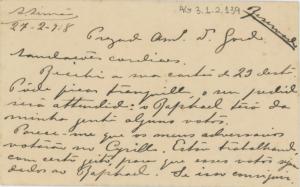 27-2-918
AG 3.1.2.139
Prezad Amº Dr Gord
Saudações cordiaes.
Recebi a sua carta de 23 deste.
Póde ficar tranquillo, o seu pedido
será attendido: o Raphael terá da
minha gente alguns votos.
Parece-me que os meus adversarios
votarão no Cyrillo. Estou trabalhando
com certo geito para que esses votos
dados ao Raphael. Se isso conseguir